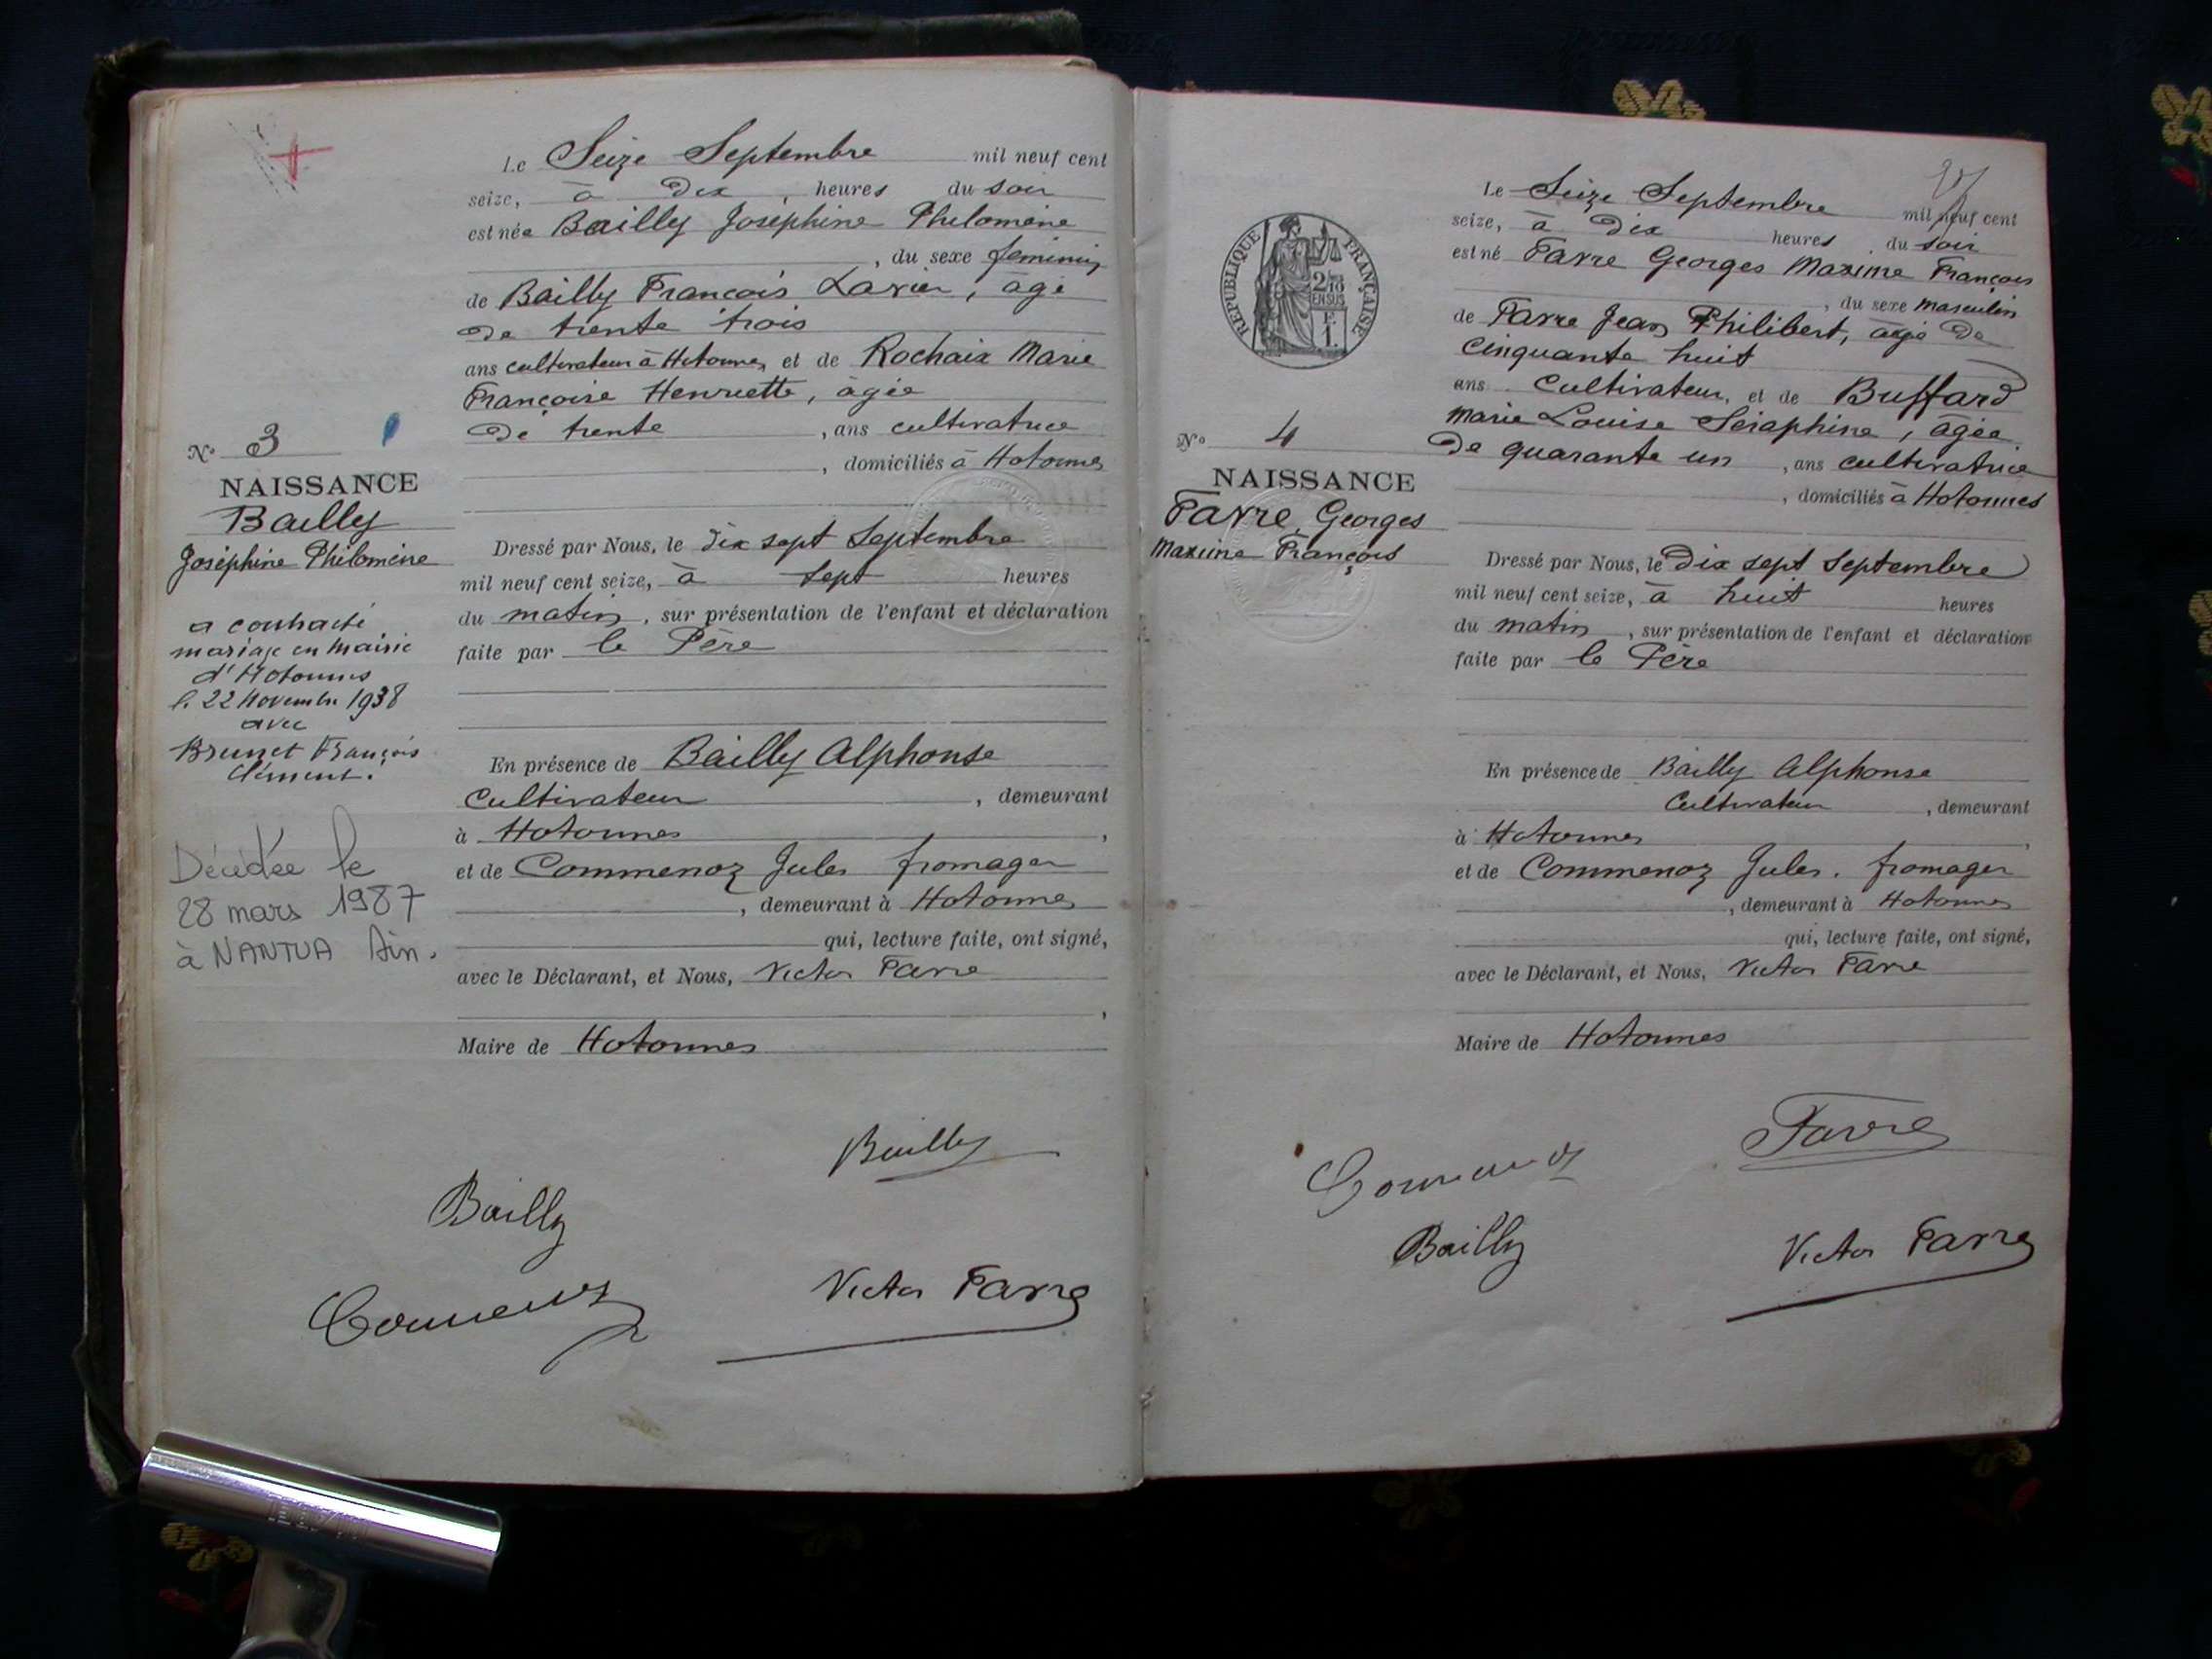 Le Seize Septembre mil neuf cent
seize, à Dix, heures du soir
est née Bailly Joséphine Philomène
, du sexe feminin
de Bailly François Xavier, âgé
De trente trois
ans cultivateur à Hotonnes et de Rochaix Marie
Françoise Henriette, âgée
De trente, ans cultivatrice
, domiciliés à Hotonnes
N° 3
NAISSANCE
Bailly
Joséphine Philomène
a contracté
mariage en Mairie
d'Hotonnes
le 22 Novembre 1938
avec
Brunet François
Clément.
Décédée le
28 mars 1987
à NANTUA Ain.
Dressé par Nous, le dix sept Septembre
mil neuf cent seize, à sept heures
du matin, sur présentation de l'enfant et déclaration
faite par le Père
En présence de Bailly Alphonse
Cultivateur, demeurant
à Hotonnes,
et de Commenoz Jules fromager
, demeurant à Hotonnes
qui, lecture faite, ont signé,
avec le Déclarant, et Nous, Victor Favre
,
Maire de Hotonnes
Bailly
Bailly
Victor Favre
Le Seize Septembre mil neuf cent
seize, à Dix heures du soir
est né Favre Georges Maxime François
, du sexe masculin
de Favre Jean Philibert, âgé De
Cinquante huit
ans Cultivateur, et de Buffard
Marie Louise Séraphine, âgée
De quarante un, ans cultivatrice
, domiciliés à Hotonnes
RÉPUBLIQUE FRANÇAISE
2/10
EN SUS
F.
1.
N° 4
NAISSANCE
Favre, Georges
Maxime François
Dressé par Nous, le Dix sept Septembre
mil neuf cent seize, à huit heures
du matin, sur présentation de l'enfant et déclaration
faite par le Père
En présence de Bailly Alphonse
Cultivateur, demeurant
à Hotonnes,
et de Commenoz Jules. fromager
, demeurant à Hotonnes
qui, lecture faite, ont signé,
avec le Déclarant, et Nous, Victor Favre
Maire de Hotonnes
Favre
Bailly
Victor Favre